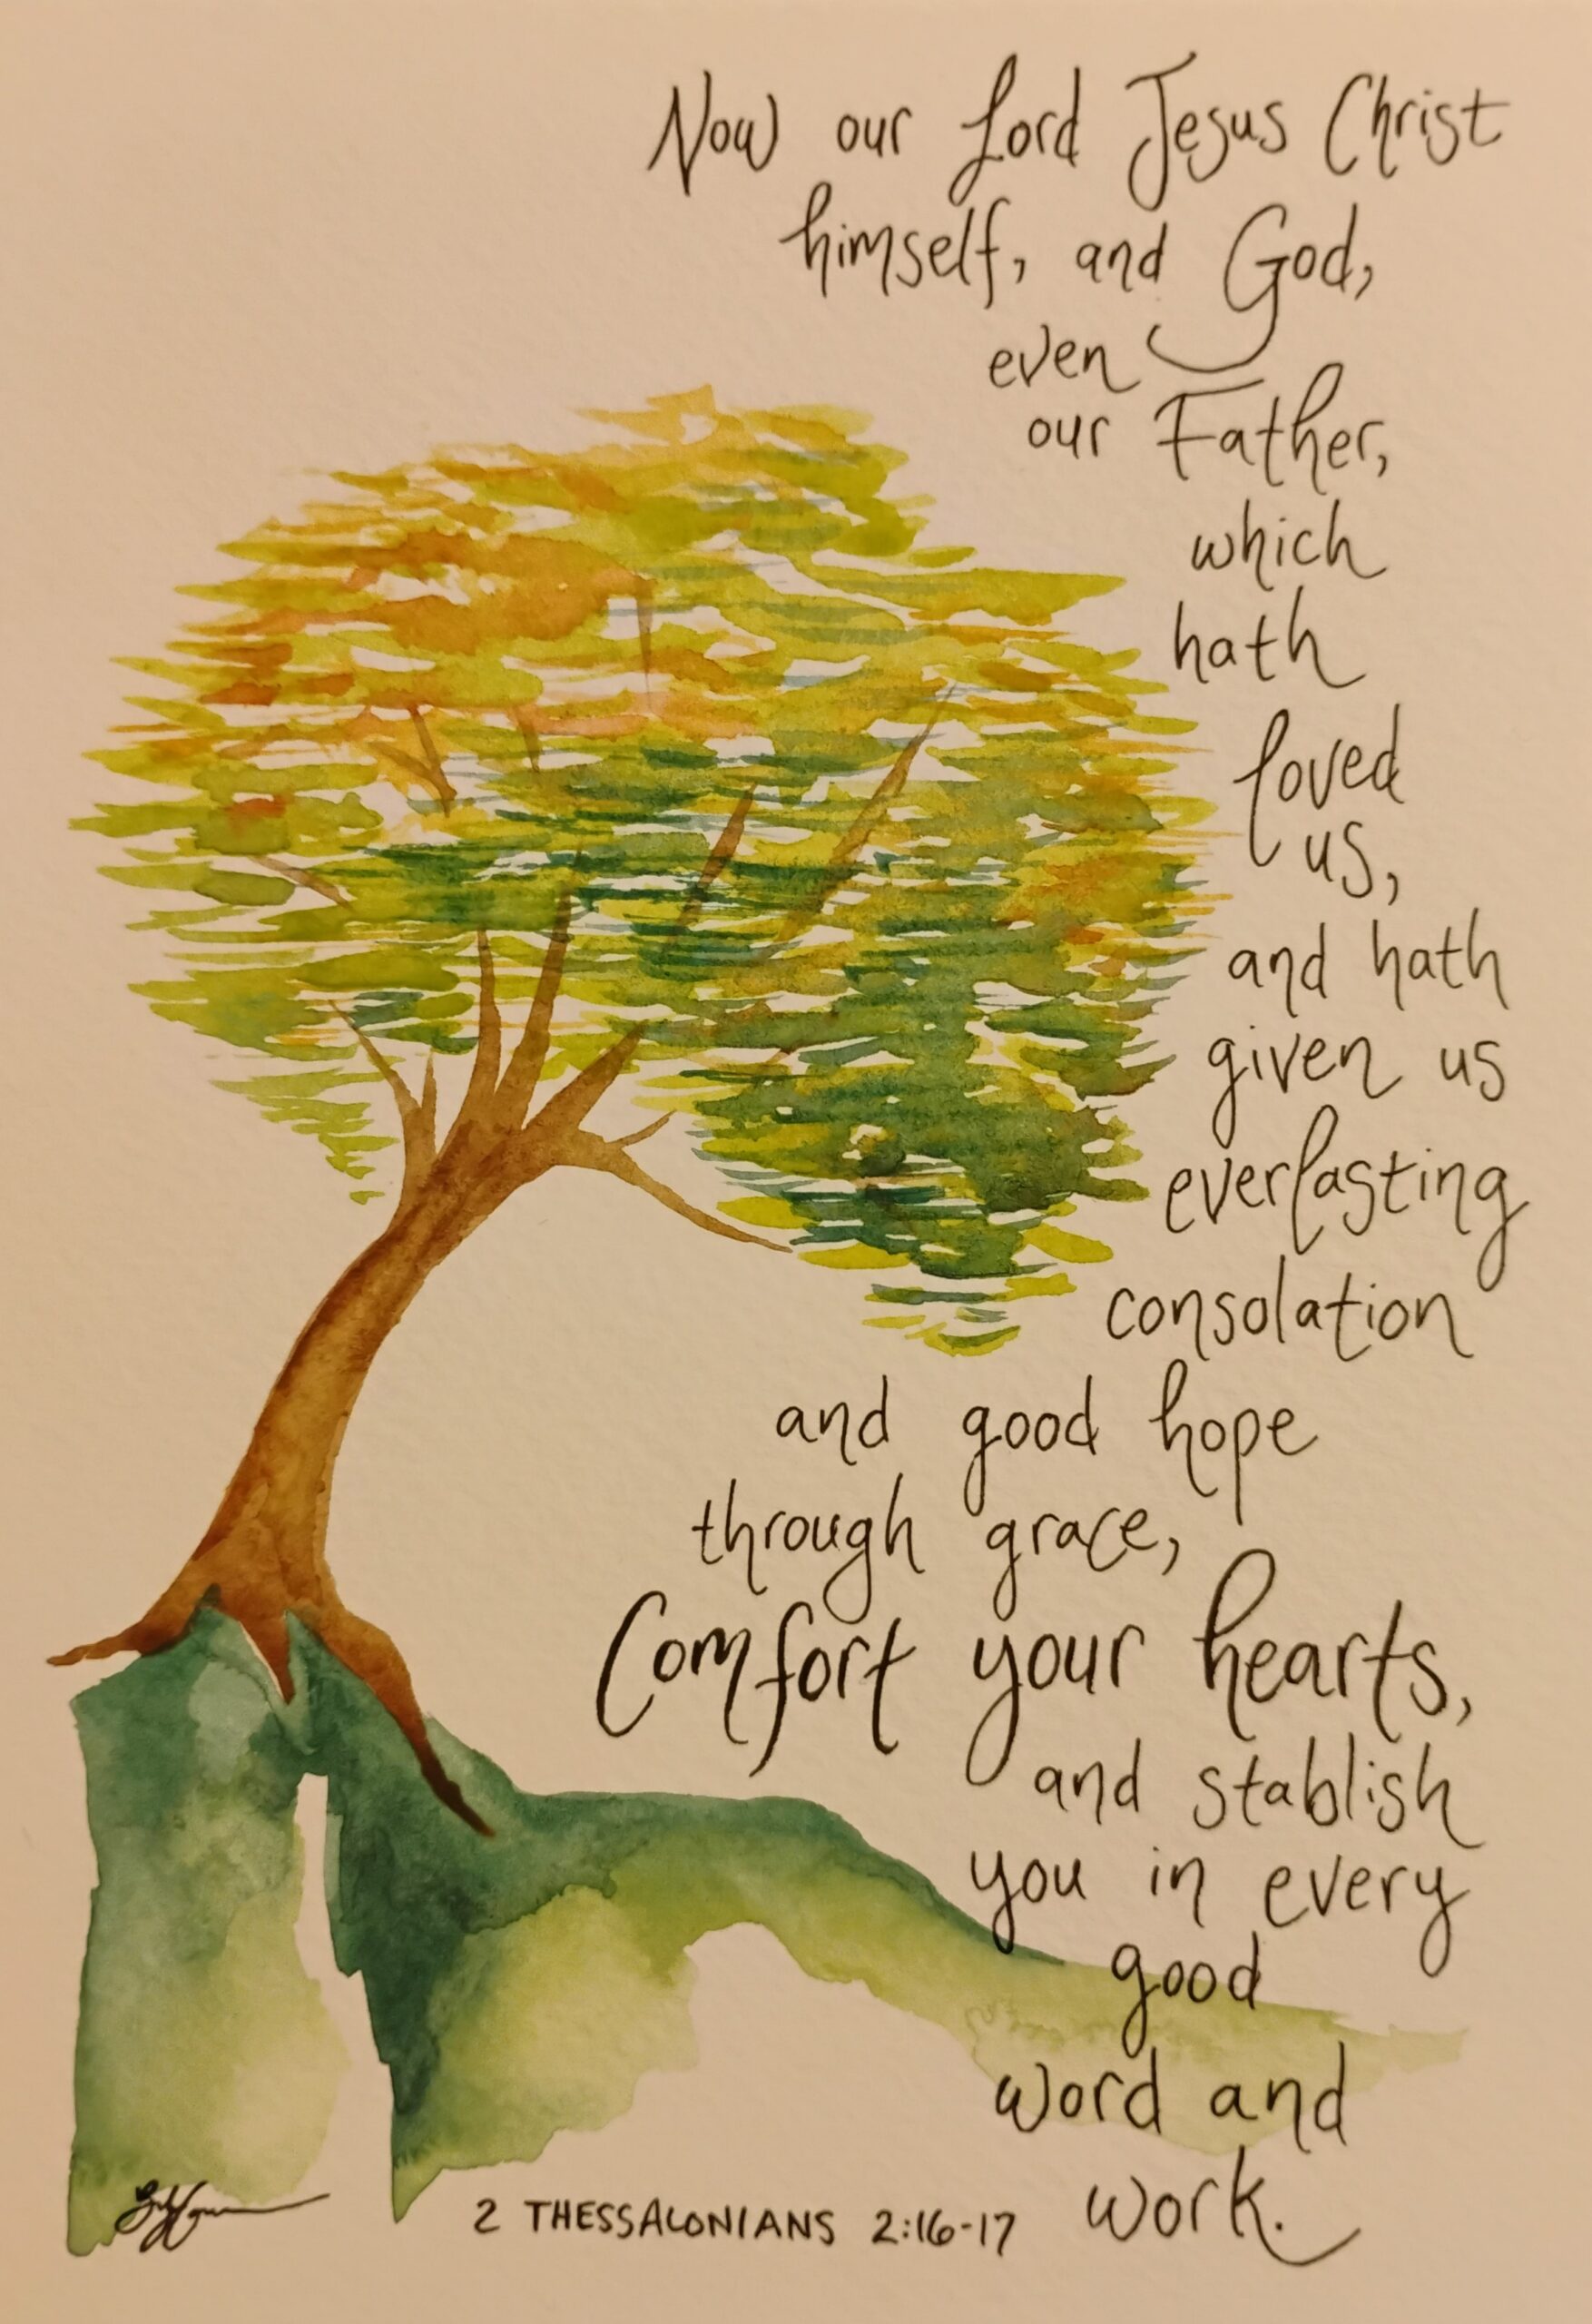 Now our Lord Jesus Christ
himself, and God,
even
our Father,
which
hath
loved
us,
and hath
given us
everlasting
consolation
and good hope
through grace,
Comfort your hearts,
and stablish
you in every
good
word and
work.
2 THESSALONIANS 2:16-17